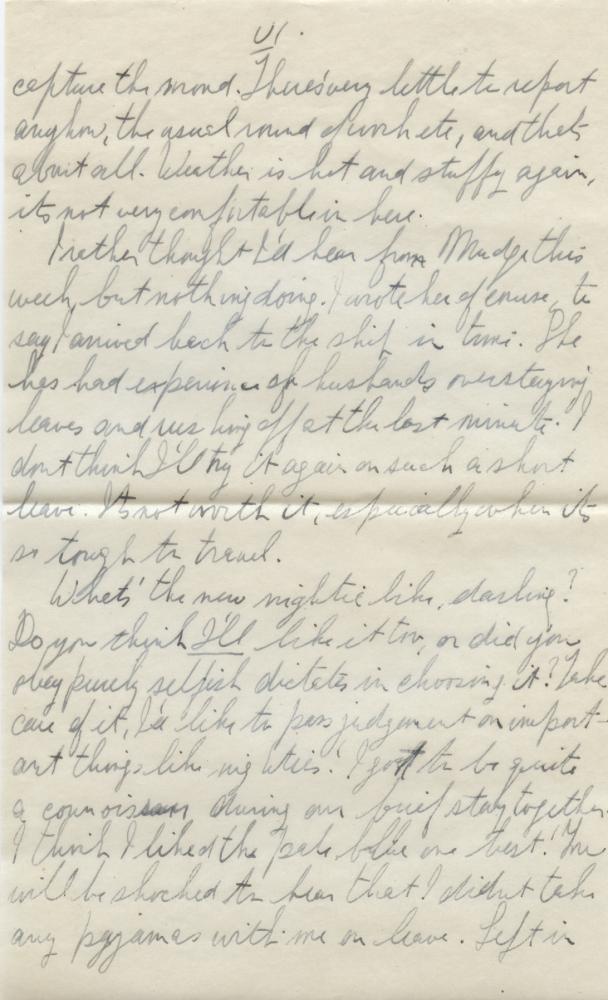 VI.
capture the mood. There's very little to report
anyhow, the usual round of work etc, and that's
about all. Weather is hot and stuffy again,
its not very comfortable in here.
I rather thought I'd hear from Madge this
week, but nothing doing. I wrote her of course, to
say I arrived back to the ship in time. She
has had experience of husbands overstaying
leaves and rushing off at the last minute. I
don't think I'll try it again on such a short
leave. It's not worth it, especially when its
so tough to travel.
Whats' the new nightie like, darling?
Do you think I'll like it too, or did you
obey purely selfish dictates in choosing it? Take
care of it, I'd like to pass judgement on import-
ant things like nighties! I got to be quite
a connoisseur, during our brief stay together.
I think I liked the pale blue one best! You
will be shocked to hear that I didn't take
any pyjamas with me on leave. Left in